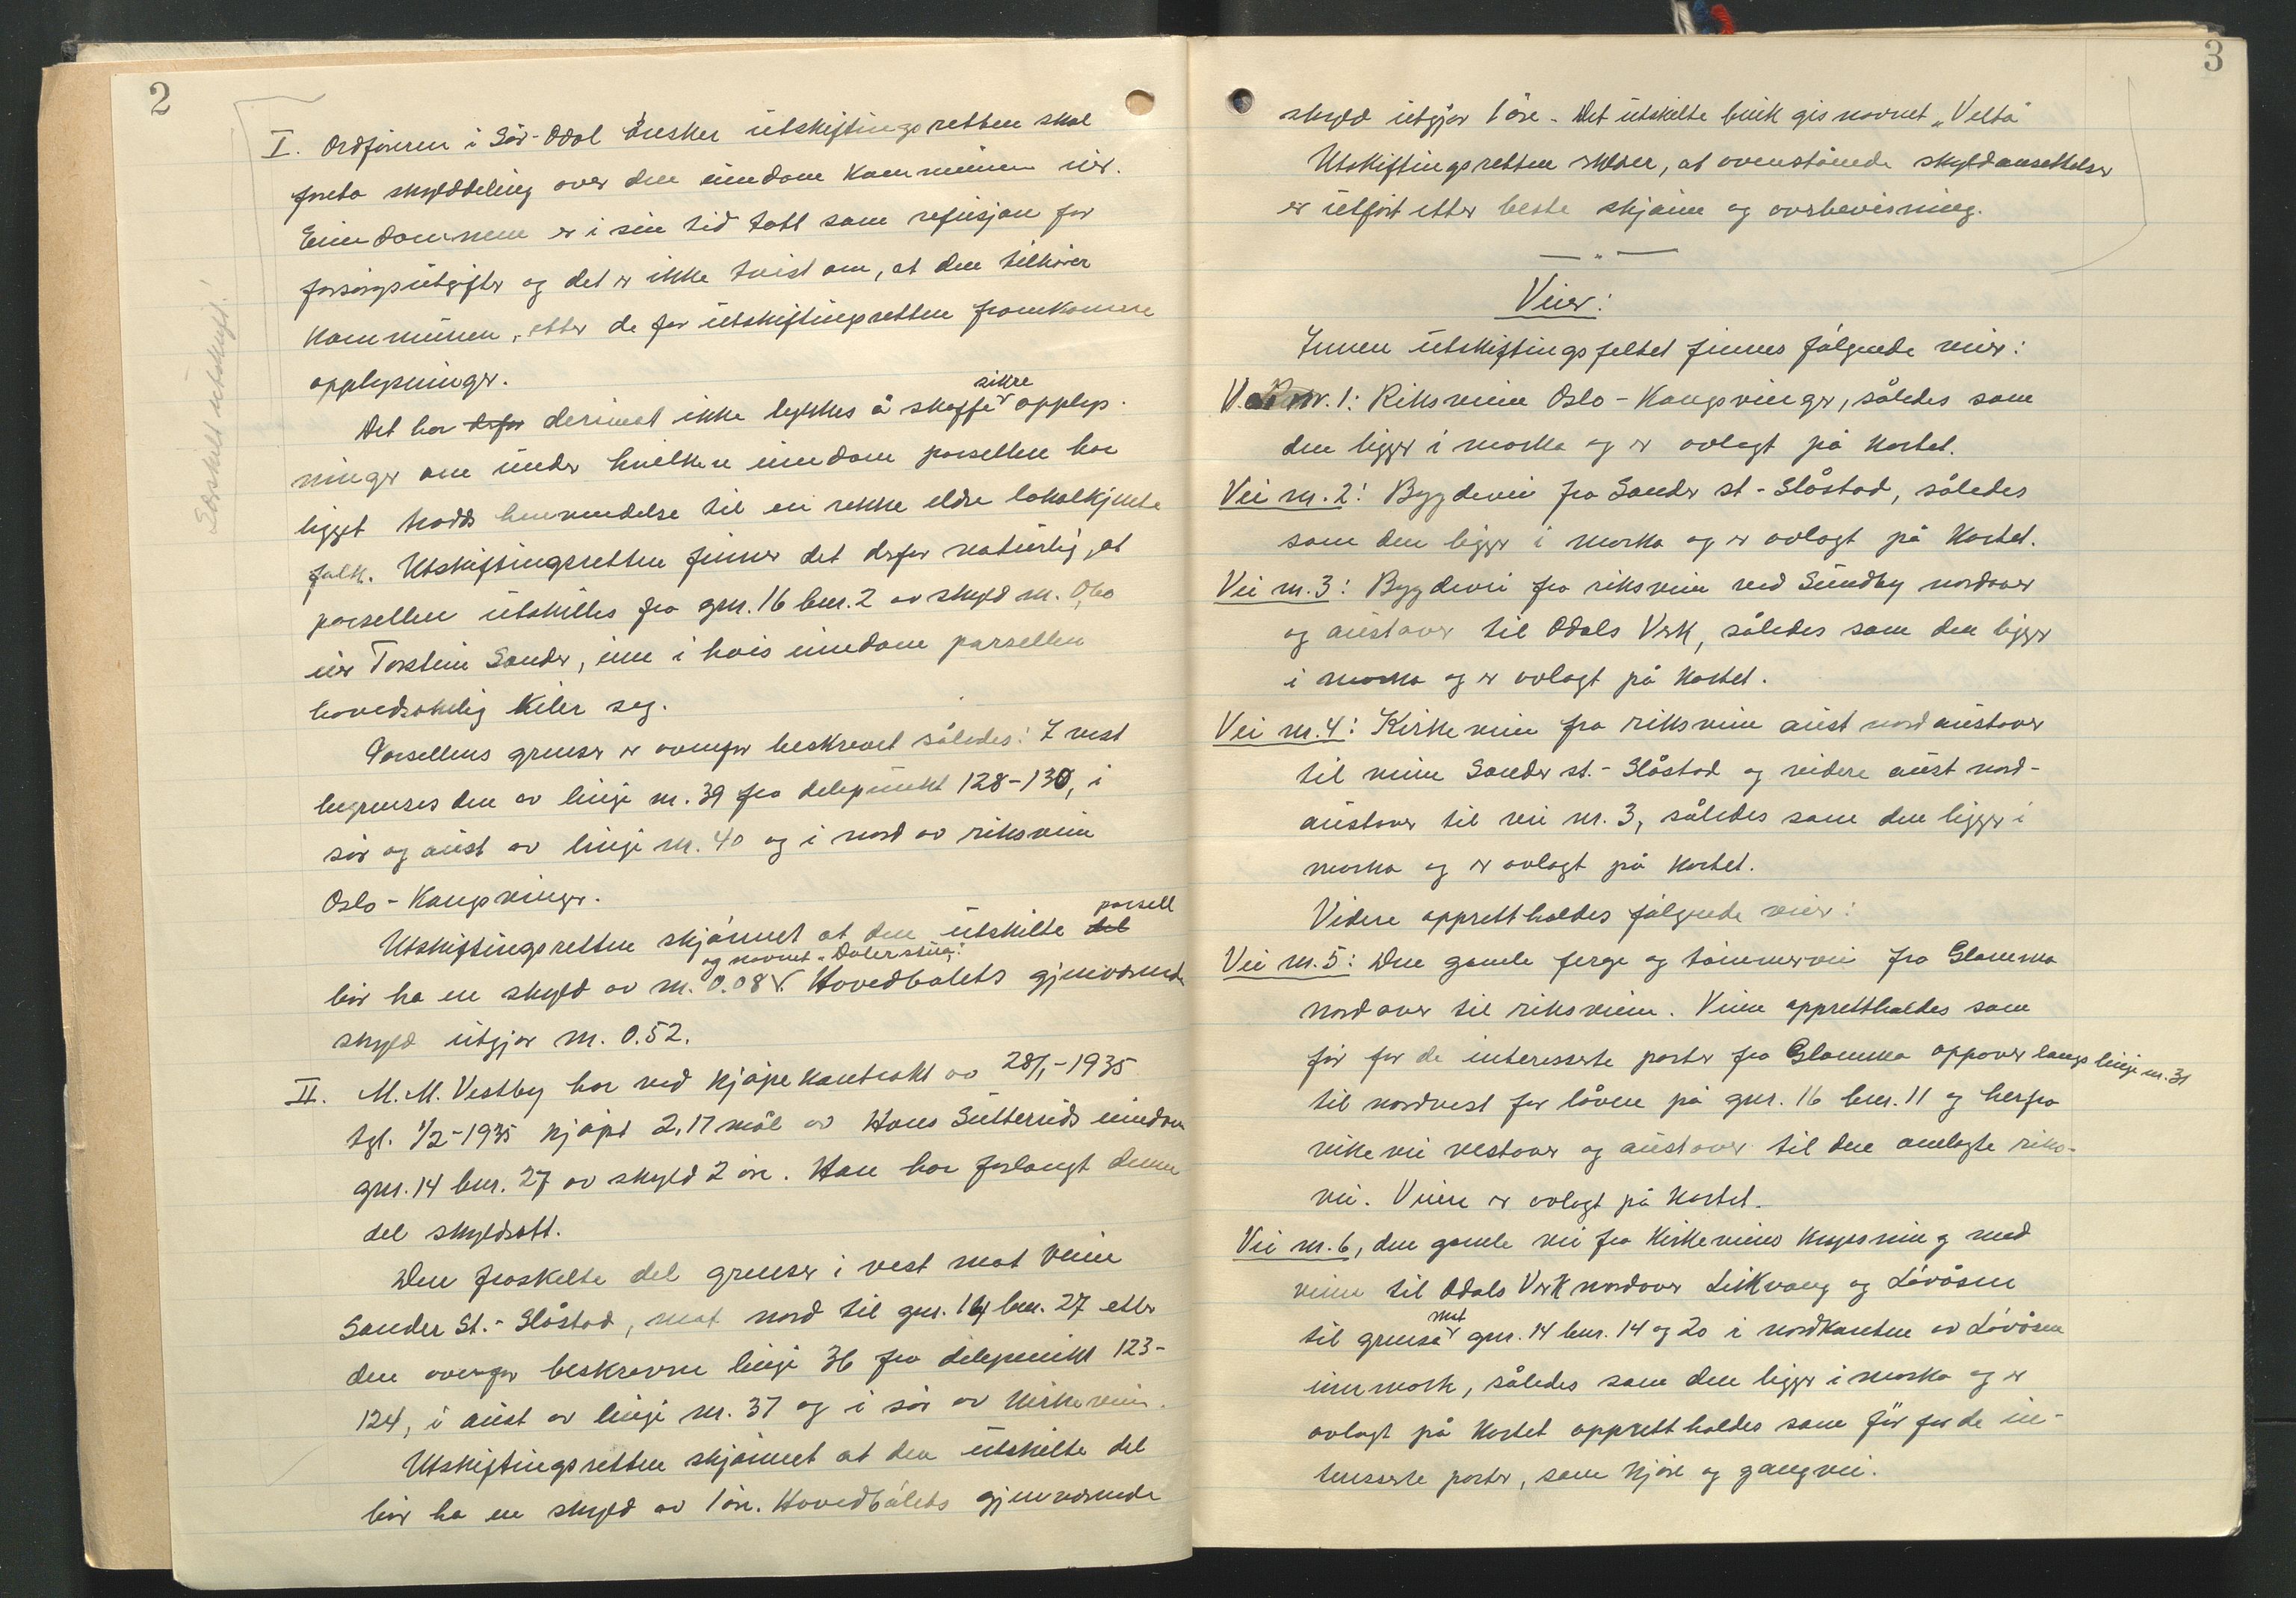 2
I. Ordføreren i Sør-Odal ønsker utskiftingsretten skal
foreta skylddeling over den eiendom kommunen eier.
Eiendommen er i sin tid tatt som refusjon for
forsorgsutgifter og det er ikke tvist om, at den tilhører
kommunen, etter de for utskiftingsretten framkomne
opplysninger.
Det har derfor derimot ikke lykkes å skaffe sikre opplys-
ninger om under hvilken eiendom parsellen har
ligget trods henvendelse til en rekke eldre lokalkjente
folk. Utskiftingsretten finner det derfor naturlig, at
parsellen utskilles fra gnr. 16 bnr. 2 av skyld m. 0,60
eier Torstein Sander, inn i hvis eiendom parsellen
hovedsakelig kiler seg.
Parsellens grenser er ovenfor beskrevet således: I vest
begrenses den av linje nr. 39 fra delepunkt 128-130, i
sør og aust av linje nr. 40 og i nord av riksveien
Oslo-Kongsvinger.
Utskiftingsretten skjønnet at den utskilte del parsell
bør ha en skyld av m. 0.08 og navnet "Dalerstua". Hovedbølets gjenværende
skyld utgjør m. 0.52.
II. M. M. Vestby har ved kjøpekontrakt av 28/1-1935
tgl. 1/2-1935 kjøpt 2,17 mål av Hans Sutteruds eiendom
gnr. 14 bnr. 27 av skyld 2 øre. Han har forlangt denne
del skyldsatt.
Den fraskilte del grenser i vest mot veien
Sander St.-Slåstad, mot nord til gnr. 14 bnr. 27 etter
den ovenfor beskrevne linje 36 fra delepunkt 123-
124, i aust av linje nr. 37 og i sør av Kirkeveien.
Utskiftingsretten skjønnet at den utskilte del
bør ha en skyld av 1 øre. Hovedbølets gjenværende
Særskilt utskrift!
3
skyld utgjør 1 øre. Det utskilte bruk gis navnet "Velta"
Utskiftingsretten erklærer, at ovenstående skyldansettelser
er utført etter beste skjønn og overbevisning.
— " —
Veier:
Innen utskiftingsfeltet finnes følgende veier:
Vei nr. 1: Riksveien Oslo-Kongsvinger, således som
den ligger i marka og er avlagt på kartet.
Vei nr. 2: Bygdevei fra Sander st-Slåstad, således
som den ligger i marka og er avlagt på kartet.
Vei nr. 3: Bygdevei fra riksveien ved Sundby nordover
og austover til Odals Verk, således som den ligger
i marka og er avlagt på kartet.
Vei nr. 4: Kirkeveien fra riksveien aust nordaustover
til veien Sander st.-Slåstad og videre aust nord-
austover til vei nr. 3, således som den ligger i
marka og er avlagt på kartet.
Videre opprettholdes følgende veier:
Vei nr. 5: Den gamle ferge og tømmervei fra Glomma
nordover til riksveien. Veien opprettholdes som
før for de interesserte parter fra Glomma oppover langs linje nr. 31
til nordvest for låven på gnr. 16 bnr. 11 og herfra
rike vei vestover og austover til den omlagte riks-
vei. Veien er avlagt på kartet.
Vei nr. 6, den gamle vei fra Kirkeveiens kryssning med
veien til Odals Verk nordover Leikvang og Løvåsen
til grensa mot gnr. 14 bnr. 14 og 20 i nordkanten av Løvåsen
innmark, således som den ligger i marka og er
avlagt på kartet opprettholdes som før for de in-
teresserte parter, som kjøre og gangvei.